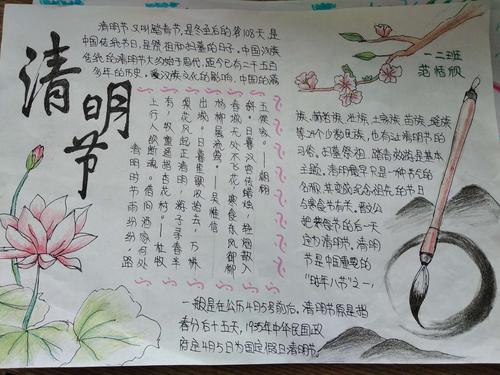 清明节
清明节又叫踏青节,是冬至后的第108天,是
中国传统节日,是祭祖和扫墓的日子。中国汉族
传统的清明节大约始于周代,距今已有二千五百
多年的历史。受汉族文化的影响,中国的满
一二班
范恬欣
族、赫哲族、壮族、土家族、苗族、瑶族
等24个少数民族,也有过清明节的
习俗。扫墓祭祖、踏青郊游是基本
主题。清明最早只是一种节气的
名称,其变成纪念祖先的节日
与寒食节有关。晋文公
把寒食节的后一天
定为清明节。清明
节是中国重要的
“时年八节”之一,
一般是在公历4月5号前后。清明节原是指
春分后十五天,1935年中华民国政
府定4月5日为国定假日清明节。
春城无处不飞花,寒食东风御柳
斜。日暮汉宫传蜡烛,轻烟散入
五侯家。——韩翃
梨花风起正清明,游子寻春半
出城。日暮笙歌收拾去,万株
杨柳属流莺。——吴惟信
清明时节雨纷纷,路
上行人欲断魂。借问酒家何处
有,牧童遥指杏花村。——杜牧